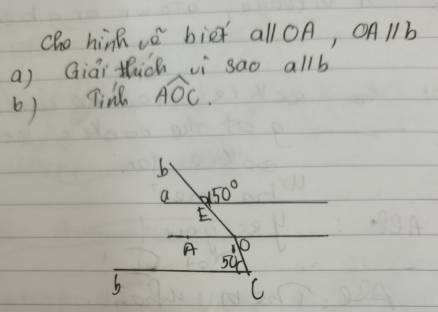 Cho hình vẽ biết a//OA, OA//b
a) Giải thích vì sao a//b
b) Tính AOC.
b
a 150°
E
A O
50°
b C